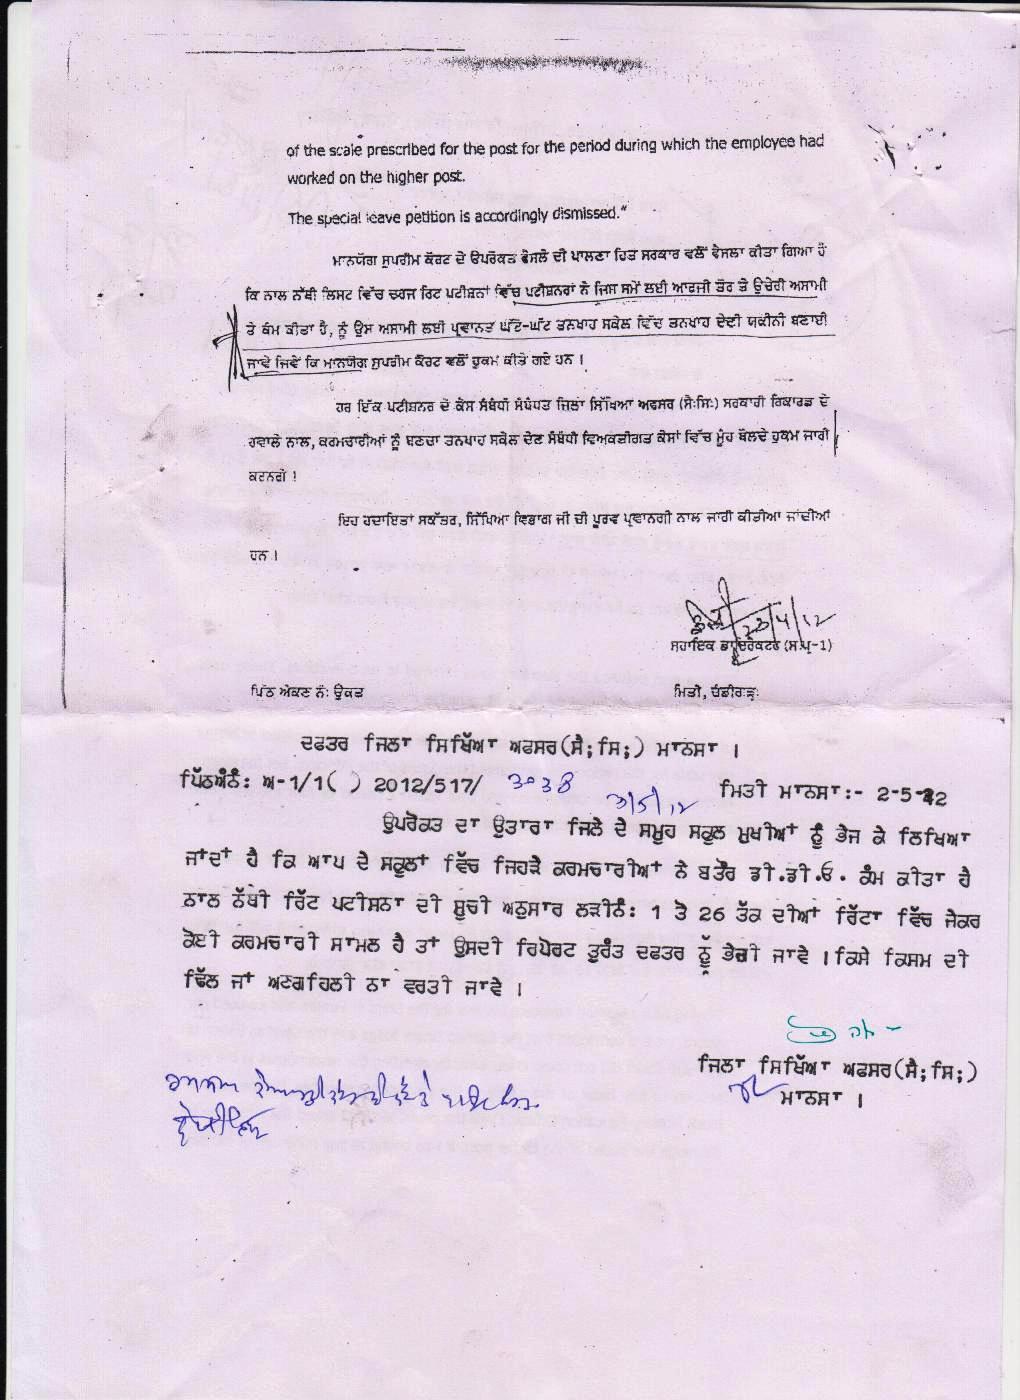 of the scale prescribed for the post for the period during which the employee had
worked on the higher post.
The special leave petition is accordingly dismissed."
ਮਾਨਯੋਗ ਸੁਪਰੀਮ ਕੋਰਟ ਦੇ ਉਪਰੋਕਤ ਫੈਸਲੇ ਦੀ ਪਾਲਣਾ ਹਿਤ ਸਰਕਾਰ ਵਲੋਂ ਫੈਸਲਾ ਕੀਤਾ ਗਿਆ ਹੈ
ਕਿ ਨਾਲ ਨੱਥੀ ਲਿਸਟ ਵਿੱਚ ਦਰਜ ਰਿਟ ਪਟੀਸ਼ਨਾਂ ਵਿੱਚ ਪਟੀਸ਼ਨਰਾਂ ਨੇ ਜਿਸ ਸਮੇਂ ਲਈ ਆਰਜੀ ਤੌਰ ਤੇ ਉਚੇਰੀ ਅਸਾਮੀ
ਤੇ ਕੰਮ ਕੀਤਾ ਹੈ, ਨੂੰ ਉਸ ਅਸਾਮੀ ਲਈ ਪ੍ਰਵਾਨਤ ਘੱਟੋ-ਘੱਟ ਤਨਖਾਹ ਸਕੇਲ ਵਿੱਚ ਤਨਖਾਹ ਦੇਣੀ ਯਕੀਨੀ ਬਣਾਈ
ਜਾਵੇ ਜਿਵੇਂ ਕਿ ਮਾਨਯੋਗ ਸੁਪਰੀਮ ਕੋਰਟ ਵਲੋਂ ਹੁਕਮ ਕੀਤੇ ਗਏ ਹਨ ।
ਹਰ ਇੱਕ ਪਟੀਸ਼ਨਰ ਦੇ ਕੇਸ ਸੰਬੰਧੀ ਸੰਬੰਧਤ ਜਿਲਾ ਸਿੱਖਿਆ ਅਫਸਰ (ਸੈ:ਸਿ:) ਸਰਕਾਰੀ ਰਿਕਾਰਡ ਦੇ
ਹਵਾਲੇ ਨਾਲ, ਕਰਮਚਾਰੀਆਂ ਨੂੰ ਬਣਦਾ ਤਨਖਾਹ ਸਕੇਲ ਦੇਣ ਸੰਬੰਧੀ ਵਿਅਕਤੀਗਤ ਕੇਸਾਂ ਵਿੱਚ ਮੂੰਹ ਬੋਲਦੇ ਹੁਕਮ ਜਾਰੀ
ਕਰਨਗੇ ।
ਇਹ ਹਦਾਇਤਾਂ ਸਕੱਤਰ, ਸਿੱਖਿਆ ਵਿਭਾਗ ਜੀ ਦੀ ਪੂਰਵ ਪ੍ਰਵਾਨਗੀ ਨਾਲ ਜਾਰੀ ਕੀਤੀਆ ਜਾਂਦੀਆਂ
ਹਨ ।
23/4/12
ਸਹਾਇਕ ਡਾਇਰੈਕਟਰ (ਸ.ਪ੍ਰ-1)
ਪਿੱਠ ਅੰਕਣ ਨੰ: ਉਕਤ ਮਿਤੀ, ਚੰਡੀਗੜ੍ਹ:
ਦਫਤਰ ਜਿਲਾ ਸਿਖਿੱਆ ਅਫਸਰ(ਸੈ;ਸਿ;) ਮਾਨਸਾ ।
ਪਿੱਠਅੰਨੰ: ਅ-1/1( ) 2012/517/ 3038 3/5/12 ਮਿਤੀ ਮਾਨਸਾ:- 2-5-12
ਉਪਰੋਕਤ ਦਾ ਉਤਾਰਾ ਜਿਲੇ ਦੇ ਸਮੂਹ ਸਕੂਲ ਮੁਖੀਆਂ ਨੂੰ ਭੇਜ ਕੇ ਲਿਖਿਆ
ਜਾਂਦਾਂ ਹੈ ਕਿ ਆਪ ਦੇ ਸਕੂਲਾਂ ਵਿੱਚ ਜਿਹੜੇ ਕਰਮਚਾਰੀਆਂ ਨੇ ਬਤੌਰ ਡੀ.ਡੀ.ਓ. ਕੰਮ ਕੀਤਾ ਹੈ
ਨਾਲ ਨੱਥੀ ਰਿੱਟ ਪਟੀਸ਼ਨਾ ਦੀ ਸੂਚੀ ਅਨੁਸਾਰ ਲੜੀਨੰ: 1 ਤੋ 26 ਤੱਕ ਦੀਆਂ ਰਿੱਟਾ ਵਿੱਚ ਜੇਕਰ
ਕੋਈ ਕਰਮਚਾਰੀ ਸਾਮਲ ਹੈ ਤਾਂ ਉਸਦੀ ਰਿਪੋਰਟ ਤੁਰੰਤ ਦਫਤਰ ਨੂੰ ਭੇਜੀ ਜਾਵੇ ।ਕਿਸੇ ਕਿਸਮ ਦੀ
ਢਿੱਲ ਜਾਂ ਅਣਗਹਿਲੀ ਨਾ ਵਰਤੀ ਜਾਵੇ ।
ਜਿਲਾ ਸਿਖਿੱਆ ਅਫਸਰ(ਸੈ;ਸਿ;)
ਮਾਨਸਾ ।